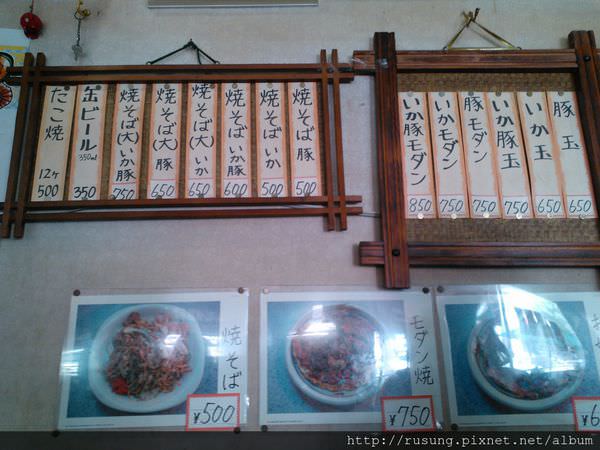 豚玉
650
いか玉
650
いか豚玉
750
豚モダン
750
いかモダン
750
いか豚モダン
850
焼そば豚
500
焼そばいか
500
焼そばいか豚
600
焼そば(大)いか
650
焼そば(大)豚
650
焼そば(大)いか豚
750
缶ビール
350ml
350
たこ焼
12ヶ
500
焼そば
¥500
モダン焼
¥750
http://rusung.pixnet.net/album